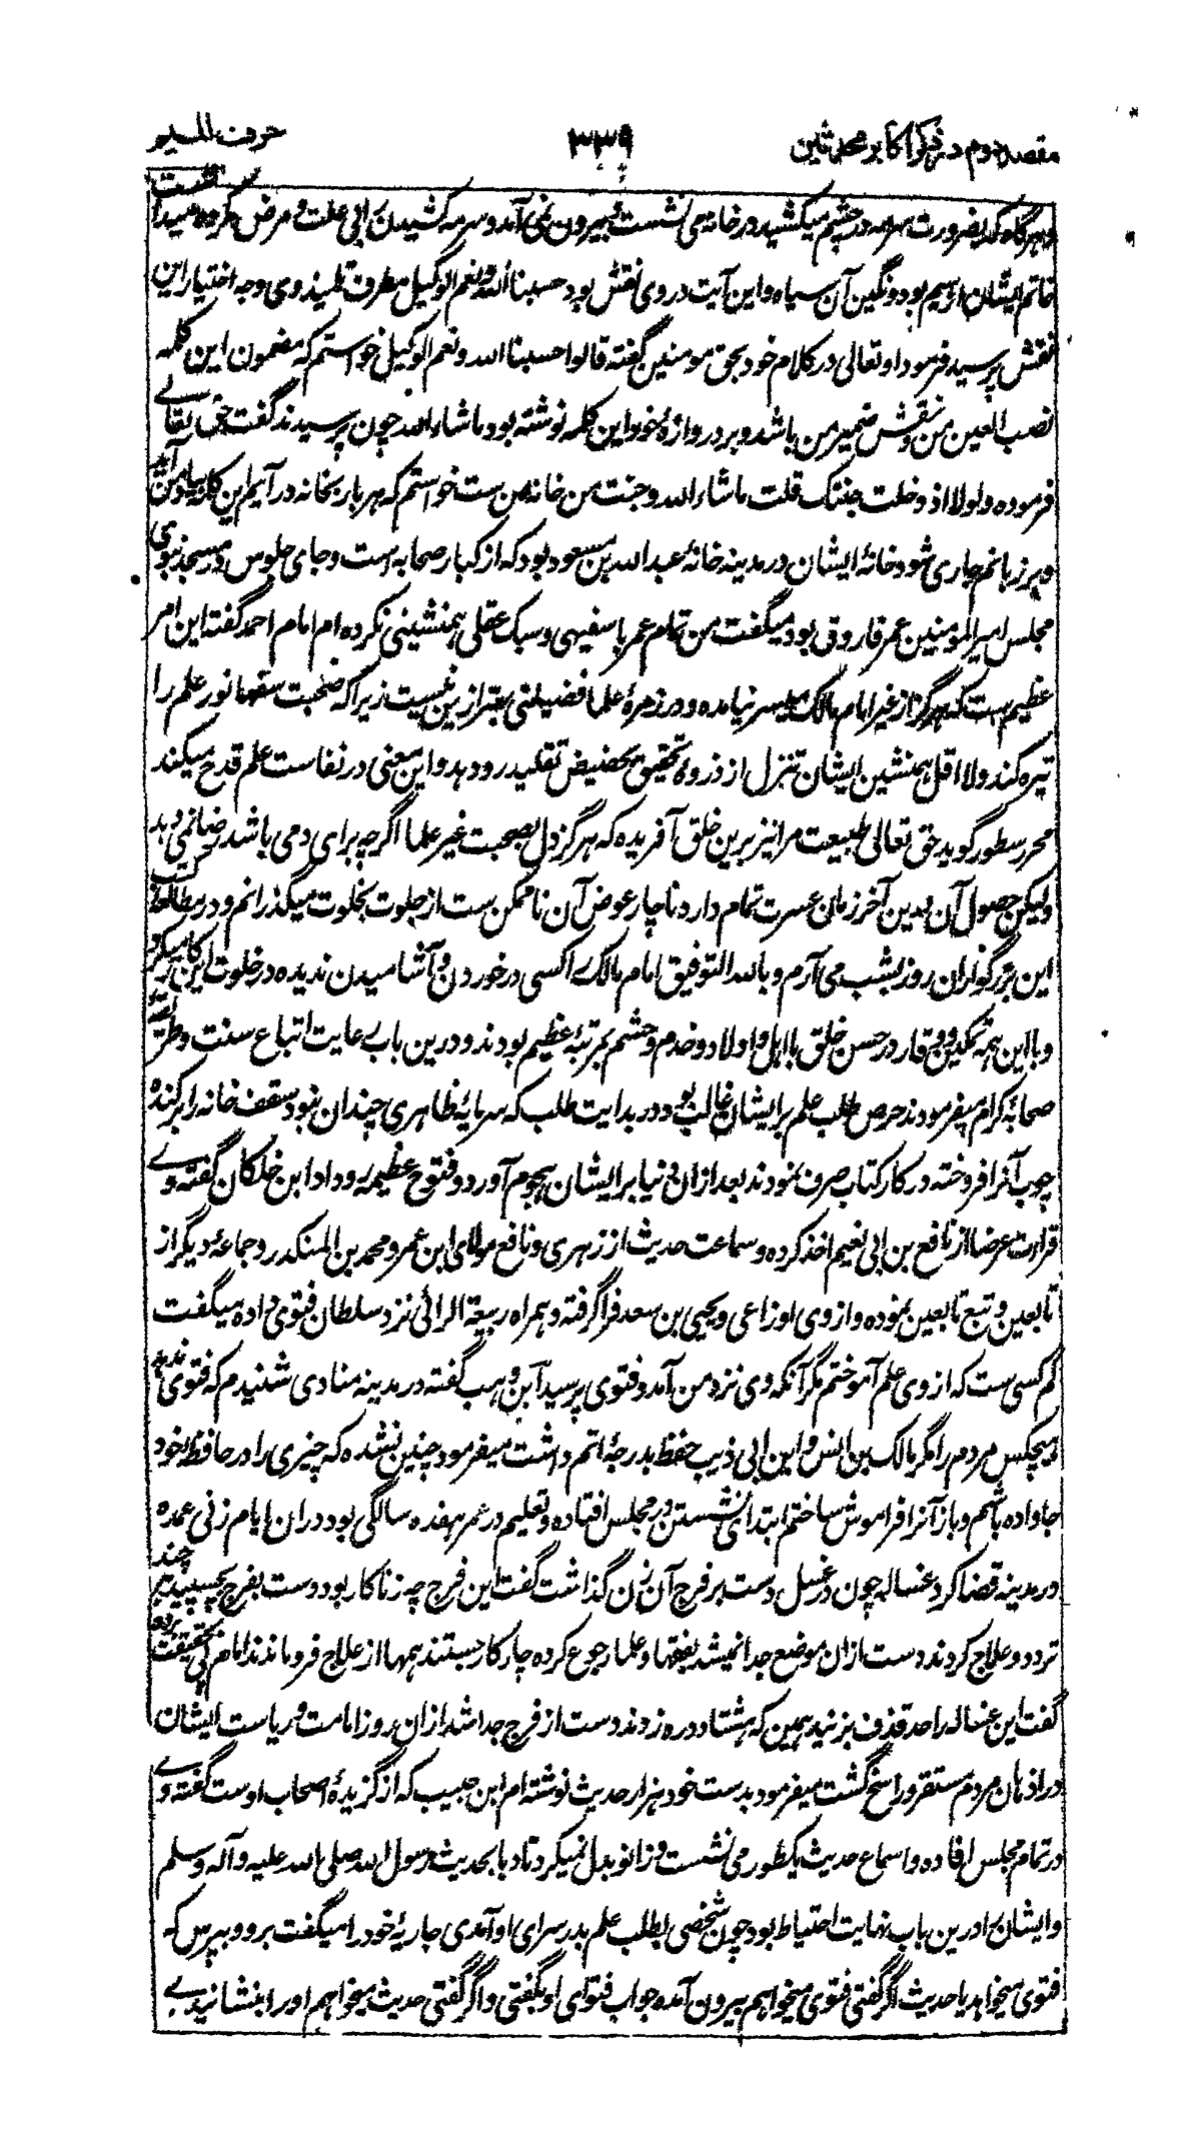 مقصد دوم در ذکر اکابر محدثین ۳۳۹ حرف المیم
و هرگاه که بضرورت سرمه در چشم میکشید در خانه می نشست و بیرون نمی آمد و سرمه کشیدن را بی علت و مرض مکروه میدانست
خاتم ایشان از سیم بود و نگین آن سیاه و این آیت در وی نقش بود حسبنا الله و نعم الوکیل مطرف تلمیذ وی وجه اختیار این
نقش پرسید فرمود او تعالی در کلام خود بحق مومنین گفته قالوا حسبنا الله و نعم الوکیل خواستم که مضمون این کلمه
نصب العین من و نقش ضمیر من باشد و بر دروازهٔ خود این کلمه نوشته بود ما شاء الله چون پرسیدند گفت حق تعالی
فرموده و لولا اذ دخلت جنتک قلت ما شاء الله و جنت من خانه من ست خواستم که هر بار بخانه در آیم این کلمه بیاد من آید
و بر زبانم جاری شود خانهٔ ایشان در مدینه خانهٔ عبد الله بن مسعود بود که از کبار صحابه است و جای جلوس در مسجد نبوی
مجلس امیر المومنین عمر فاروق بود میگفت من تمام عمر با سفیهی و سبک عقلی همنشینی نکرده ام امام احمد گفته این امر
عظیم ست که هرگز از غیر امام مالک میسر نیامده و در زمرهٔ علما فضیلتی بهتر ازین نیست زیرا که صحبت سفها نور علم را
تیره کند و لا اقل همنشین ایشان تنزل از ذروهٔ تحقیق بحضیض تقلید رو دهد و این معنی در نفاست علم قدح میکند
محرر سطور گوید حق تعالی طبیعت مرا نیز برین خلق آفریده که هرگز دل بصحبت غیر علما اگرچه برای دمی باشد رضا نمی دهد
ولیکن حصول آن بدین آخر زمان عسرت تمام دارد ناچار عوض آن ناممکن ست از جلوت بخلوت میگذرانم و در مطالعهٔ کتب
این بزرگواران روز بشب می آرم و بالله التوفیق امام مالک را کسی در خوردن و آشامیدن ندیده در خلوت این کار میکرد
و با این همه تمکین و وقار در حسن خلق با اهل و اولاد و خدم و حشم بمرتبهٔ عظیم بودند و درین باب رعایت اتباع سنت و طریقهٔ
صحابهٔ کرام میفرمودند حرص طلب علم بر ایشان غالب بود در بدایت طلب که سرمایهٔ ظاهری چندان نبود سقف خانه را بر کنده
چوب آنرا فروخته در کار کتاب صرف نمودند بعد ازان دنیا بر ایشان هجوم آورد و فتوح عظیم رو داد ابن خلکان گفته وی
قراءت عرضا از نافع بن ابی نعیم اخذ کرده و سماعت حدیث از زهری و نافع مولای ابن عمر و محمد بن المنکدر و جماعهٔ دیگر از
تابعین و تبع تابعین نموده و از وی اوزاعی و یحیی بن سعد فرا گرفته و همراه ربیعة الرائی نزد سلطان فتوی داده میگفت
کم کسی ست که از وی علم آموختم مگر آنکه وی نزد من آمد و فتوی پرسید ابن وهب گفته در مدینه منادی شنیدم که فتوی ندهد
هیچکس مردم را مگر مالک بن انس و ابن ابی ذیب حفظ بدرجهٔ اتم داشت میفرمود چنین نشده که چیزی را در حافظهٔ خود
جا داده باشم و باز آنرا فراموش ساختم ابتدای نشستن در مجلس افتاده و تعلیم در عمر هفده سالگی بود دران ایام زنی عمده
در مدینه قضا کرد غساله چون در غسل دست بر فرج آن زن گذاشت گفت این فرج چه زناکار بود دست بفرج بچسپید هر چند
تردد و علاج کردند دست ازان موضع جدا نمیشد بفقها و علما رجوع کرده چار کار جستند همها از علاج فرو ماندند امام پی بحقیقت برده
گفت این غساله را حد قذف بزنید همین که هشتاد دره زدند دست از فرج جدا شد ازان روز امامت و ریاست ایشان
در اذهان مردم مستقر و راسخ گشت میفرمود بدست خود هزار حدیث نوشته ام ابن حبیب که از گزیدهٔ اصحاب اوست گفته وی
در تمام مجلس افاده و اسماع حدیث یکطور می نشست و زانو بدل نمیکرد تادبا بحدیث رسول الله صلی الله علیه و آله و سلم
و ایشان را درین باب نهایت احتیاط بود چون شخصی بطلب علم بدر سرای او آمدی جاریهٔ خود را میگفت برو و بپرس که
فتوی میخواهد یا حدیث اگر گفتی فتوی میخواهم بیرون آمده جواب فتوای او بگفتی و اگر گفتی حدیث میخواهم او را بنشانیدی